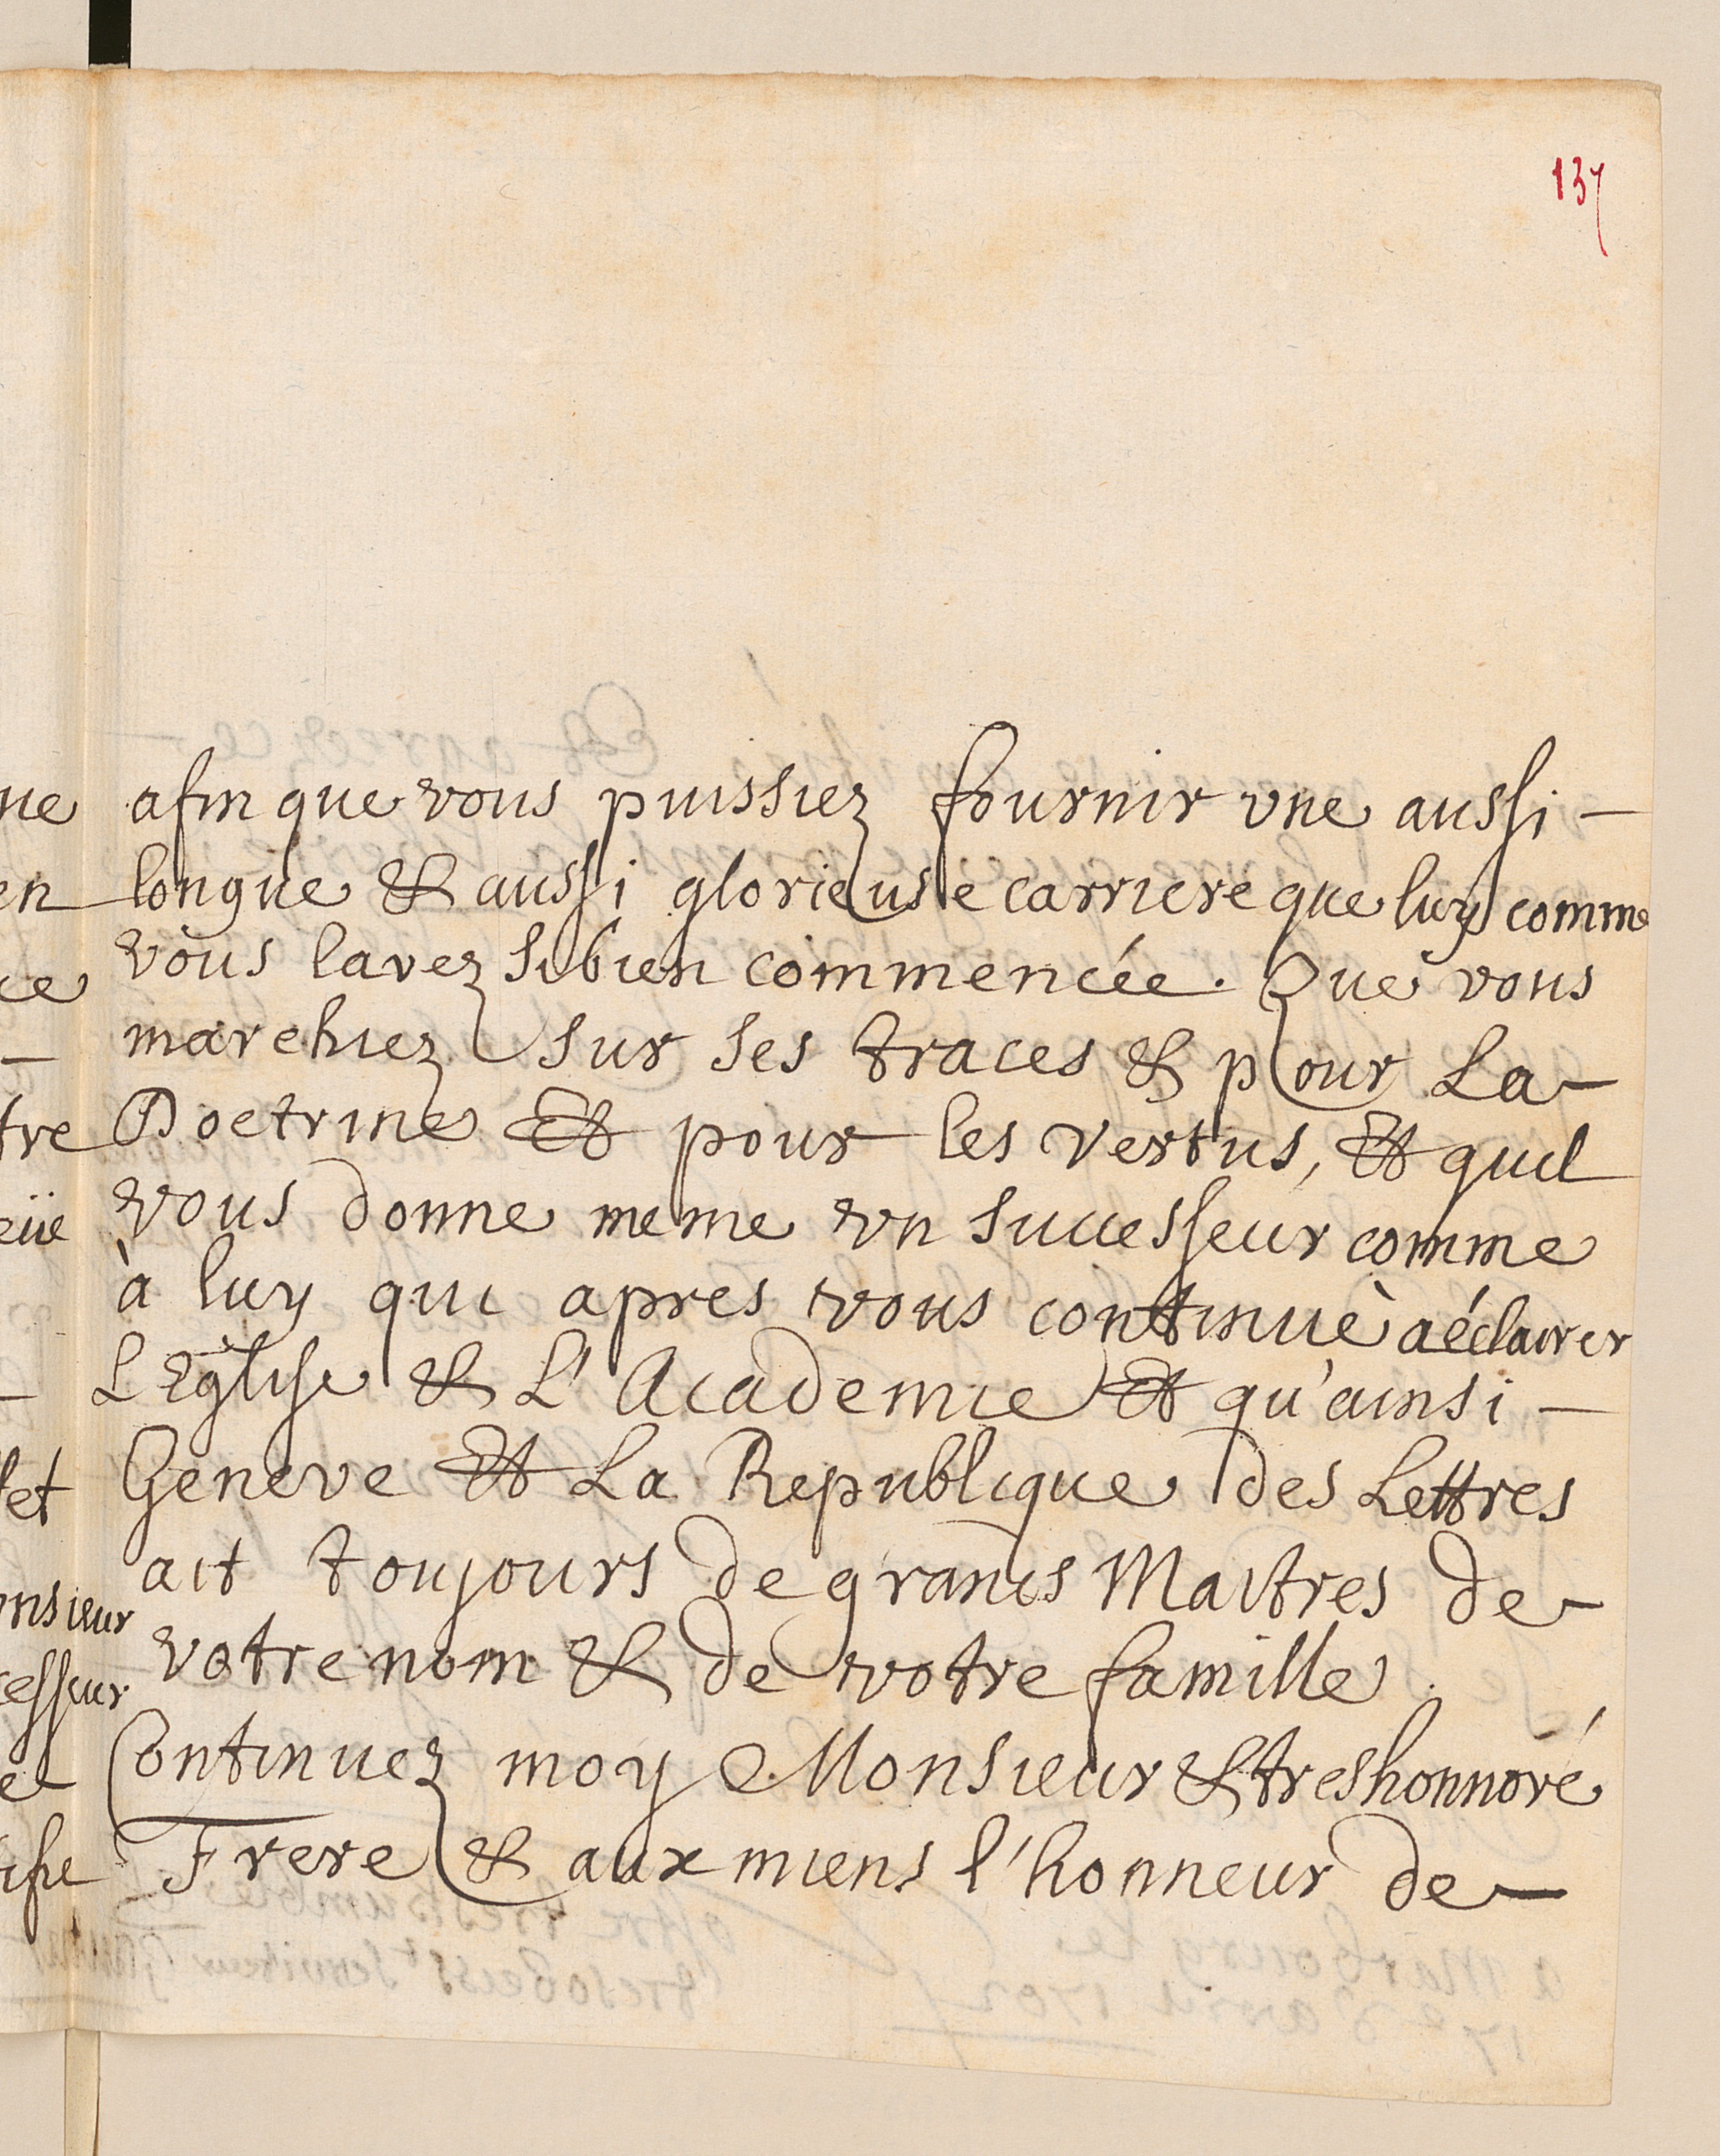 137
afin que vous puissiez fournir vne aussi –
longue & aussi glorieuse carriere que luy comme
vous lavez si bien commencée. Que vous
marchiez sur ses traces & pour La –
Doctrine Et pour les vertus, Et quil
vous donne meme vn successeur comme
à luy qui apres vous continuë à éclairer
L'Eglise & L'Academie Et qu'ainsi –
Geneve Et La Republique des Lettres
ait toujours de grands Maitres de –
votre nom & de votre famille.
Continuez moy Monsieur & treshonnoré
Frere & aux miens l'honneur de –